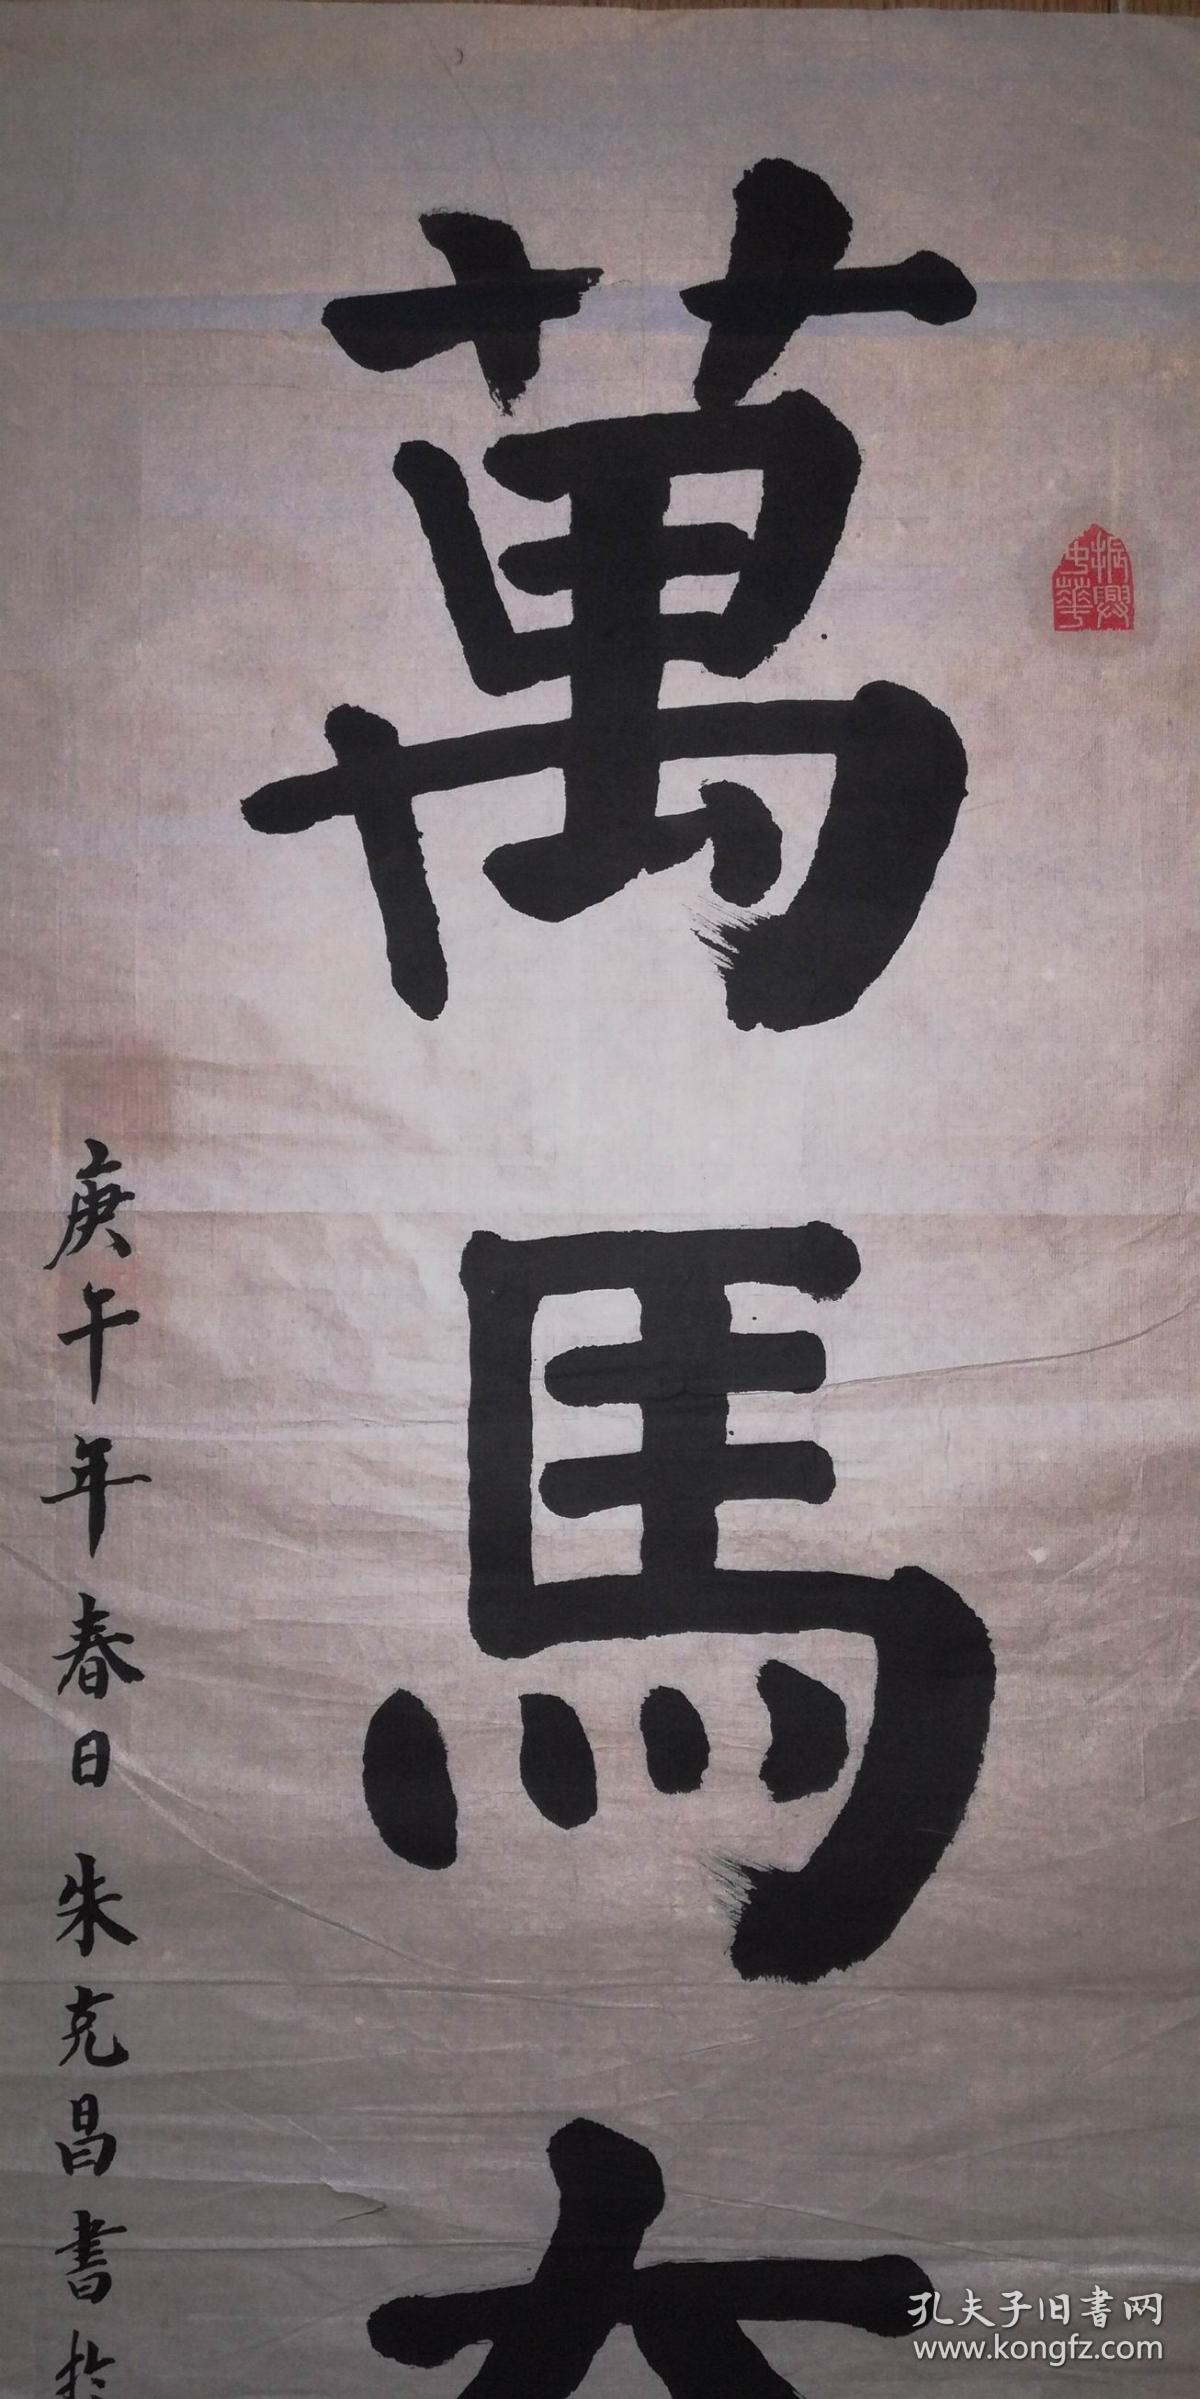 萬馬
振興
中華
庚午年春日朱克昌書於
孔夫子旧書网
www.kongfz.com